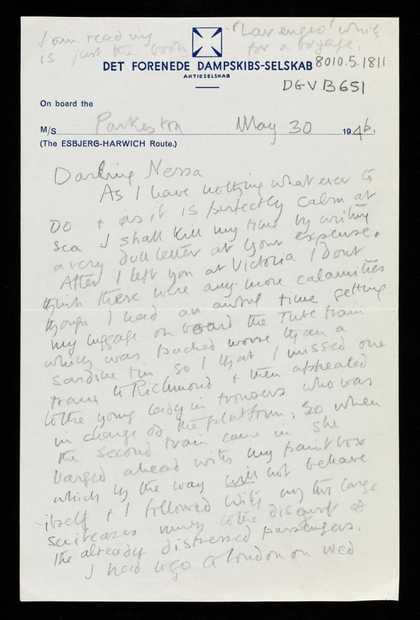 I am reading my "Lavengro" which
is just the book for a voyage.
DET FORENEDE DAMPSKIBS-SELSKAB
AKTIESELSKAB
8010.5.1811
DGVB651
On board the
M/S Parkeston May 30 1946.
(The ESBJERG-HARWICH Route.)
Darling Nessa
As I have nothing what ever to
do & as it is perfectly calm at
sea I shall kill my time by writing
a very dull letter at your expense.
After I left you at Victoria I dont
think there were any more calamities
though I had an awful time getting
my luggage on board the Tube train
which was packed worse than a
sardine tin, so I that I missed one
train to Richmond & then appealed
to the young lady in trousers who was
in charge of the platform, so when
the second train came in she
barged ahead with my paint box
which by the way will not behave
itself & I followed with my two large
suitcases much to the disgust of
the already distressed passengers.
I had to go to London on Wed